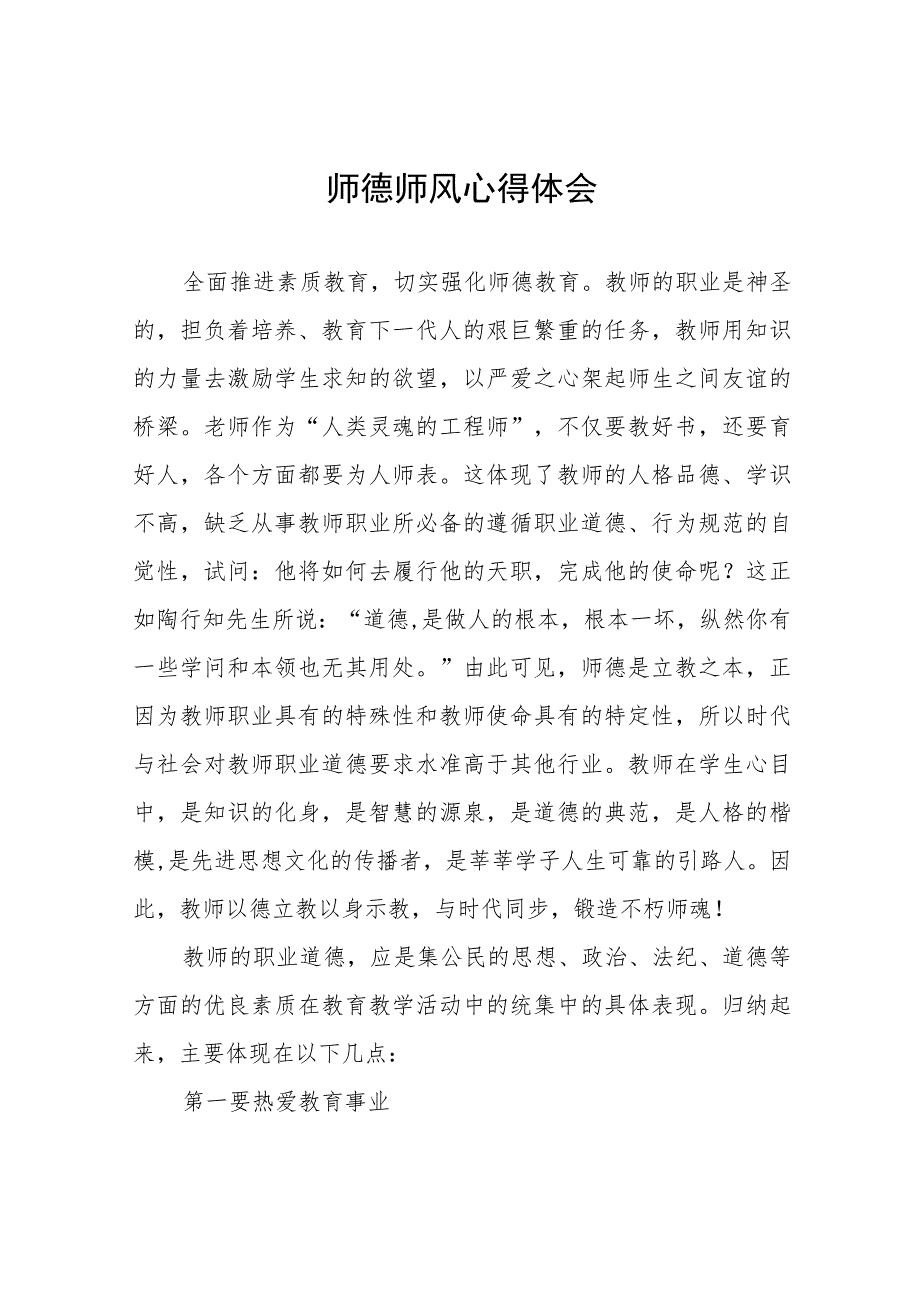 师德师风心得体会
全面推进素质教育，切实强化师德教育。教师的职业是神圣
的，担负着培养、教育下一代人的艰巨繁重的任务，教师用知识
的力量去激励学生求知的欲望，以严爱之心架起师生之间友谊的
桥梁。老师作为“人类灵魂的工程师”，不仅要教好书，还要育
好人，各个方面都要为人师表。这体现了教师的人格品德、学识
不高，缺乏从事教师职业所必备的遵循职业道德、行为规范的自
觉性，试问：他将如何去履行他的天职，完成他的使命呢？这正
如陶行知先生所说：“道德,是做人的根本，根本一坏，纵然你有
一些学问和本领也无其用处。”由此可见，师德是立教之本，正
因为教师职业具有的特殊性和教师使命具有的特定性，所以时代
与社会对教师职业道德要求水准高于其他行业。教师在学生心目
中，是知识的化身，是智慧的源泉，是道德的典范，是人格的楷
模,是先进思想文化的传播者，是莘莘学子人生可靠的引路人。因
此，教师以德立教以身示教，与时代同步，锻造不朽师魂！
教师的职业道德，应是集公民的思想、政治、法纪、道德等
方面的优良素质在教育教学活动中的统集中的具体表现。归纳起
来，主要体现在以下几点：
第一要热爱教育事业